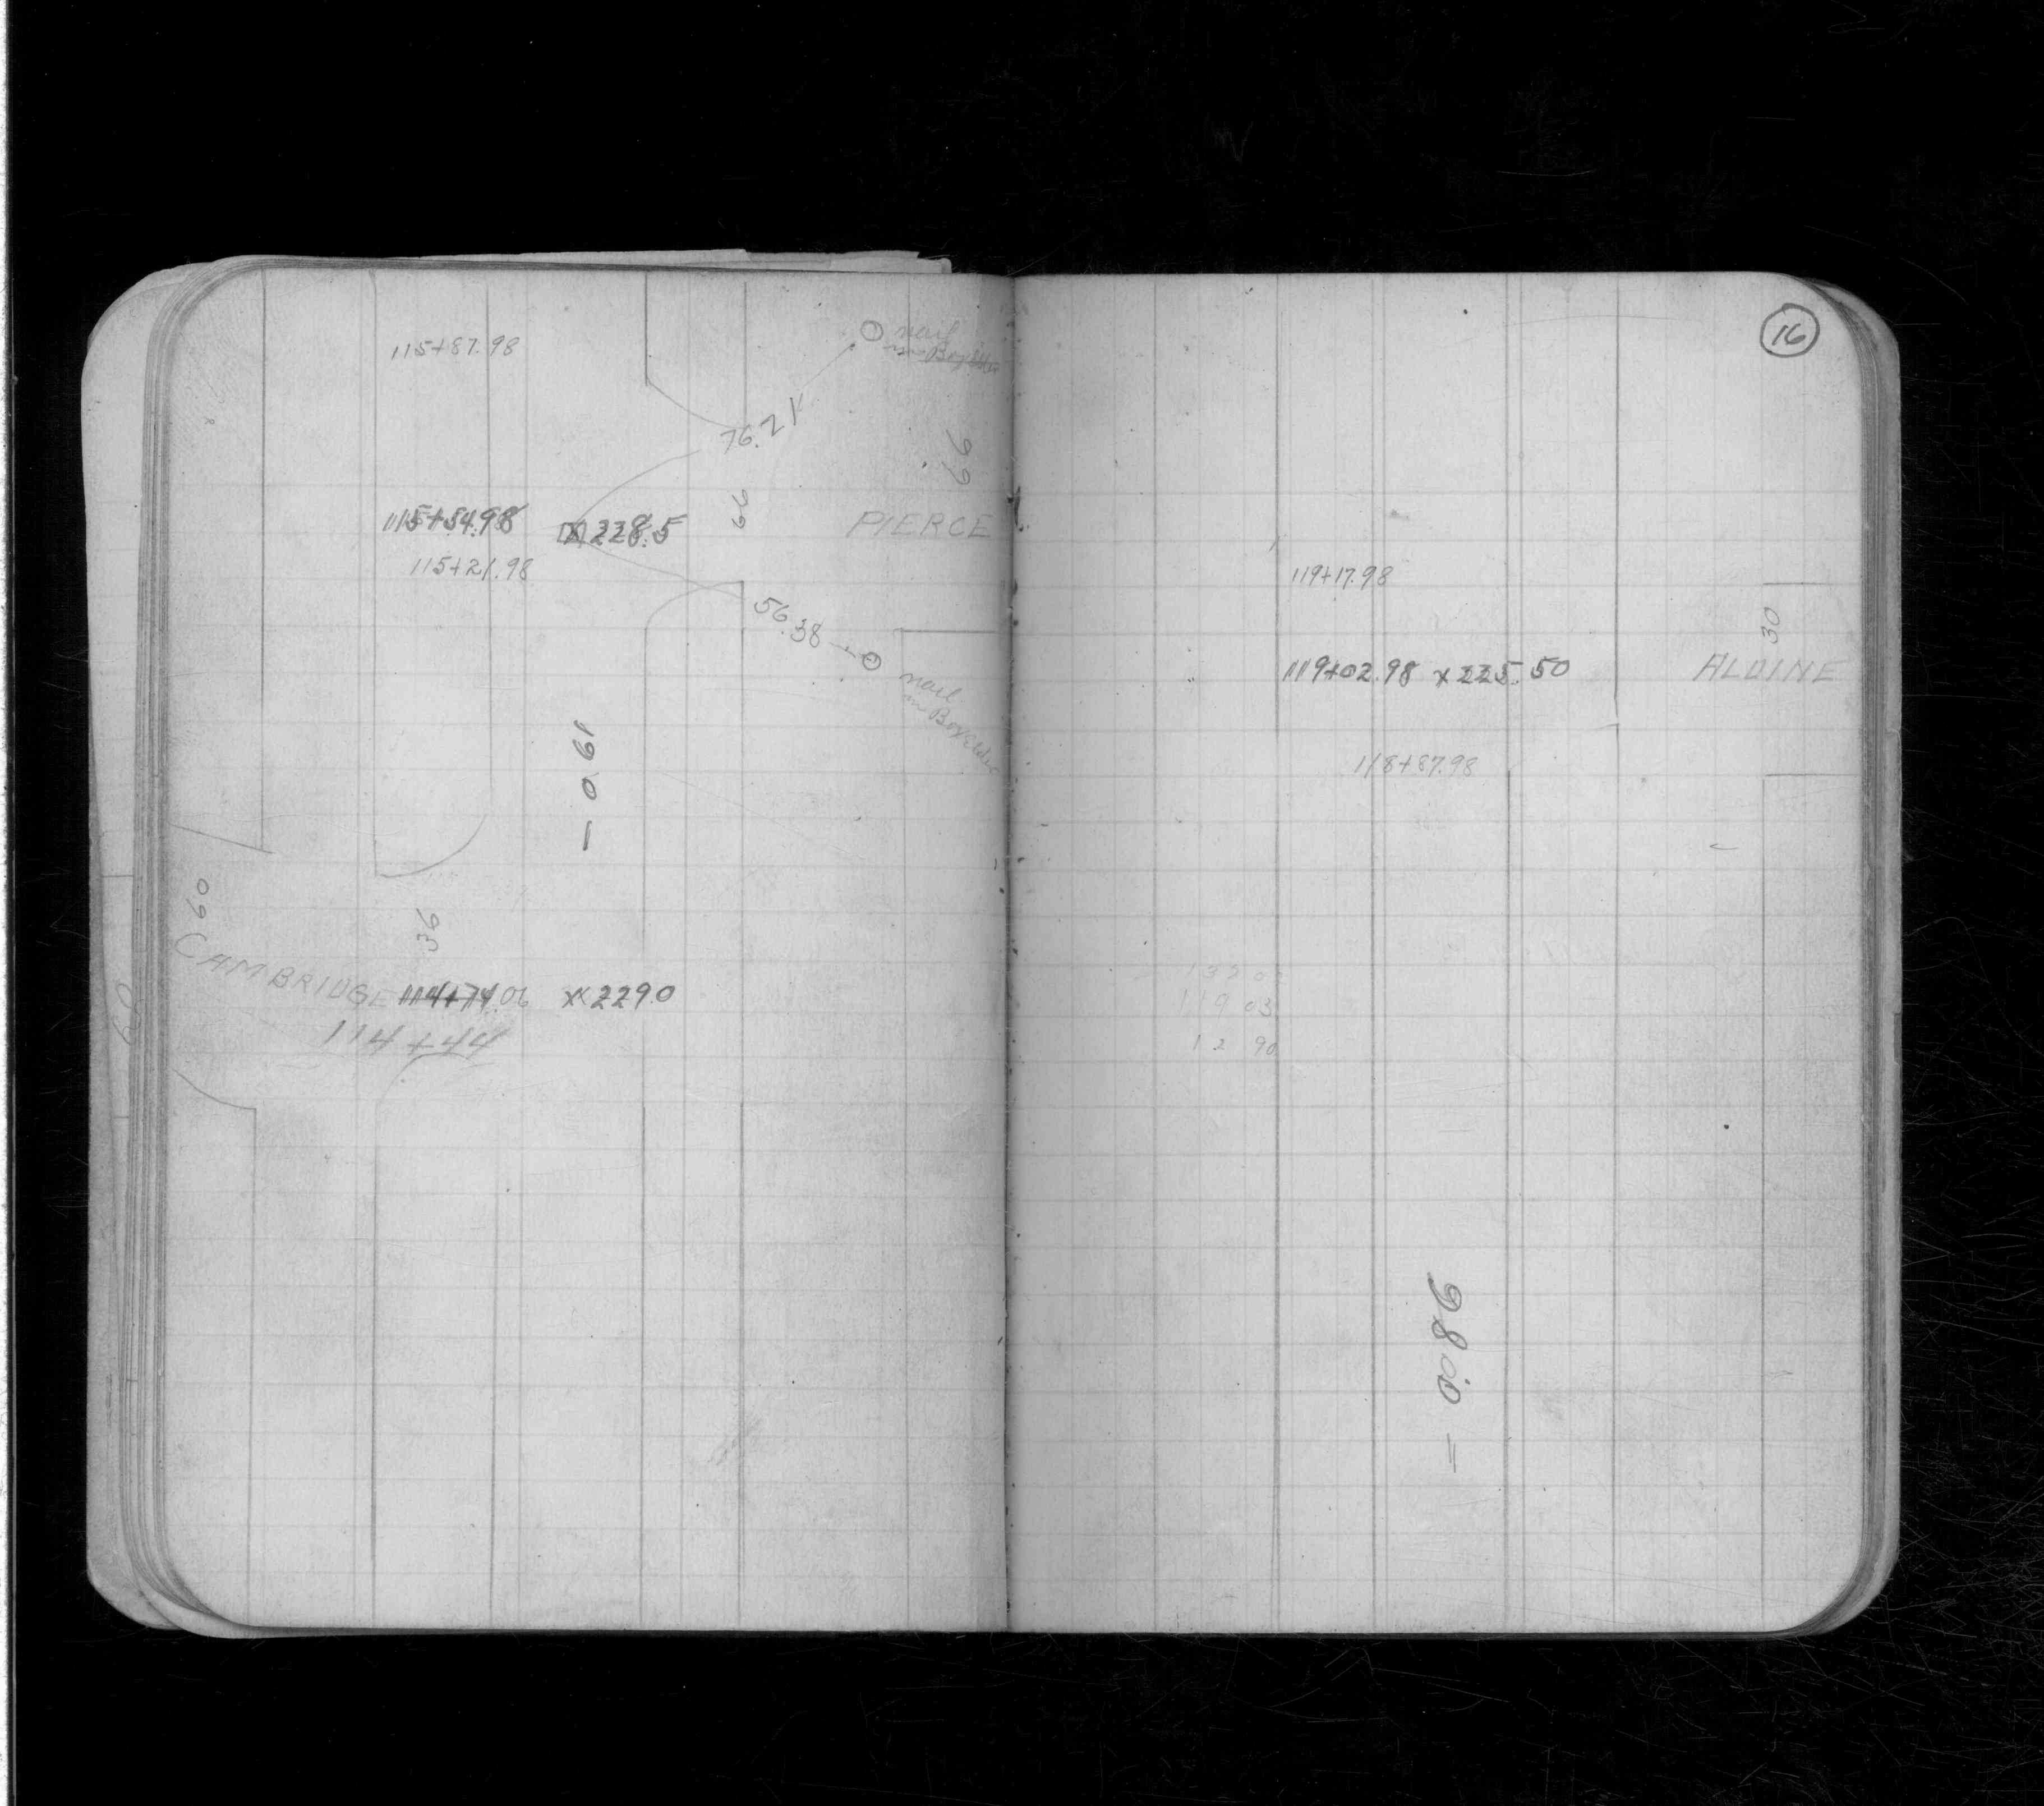 115+87.98
nail
in Boxelder
76.21
66
66
PIERCE
115+54.98 x 228.5
115+21.98
56.38
nail
in Boxelder
- 0.61
60
36
CAMBRIDGE 114+74.06 x 229.0
114+44
60
16
119+17.98
30
119+02.98 x 225.50
ALDINE
118+87.98
119 03
12 90
- 0.86